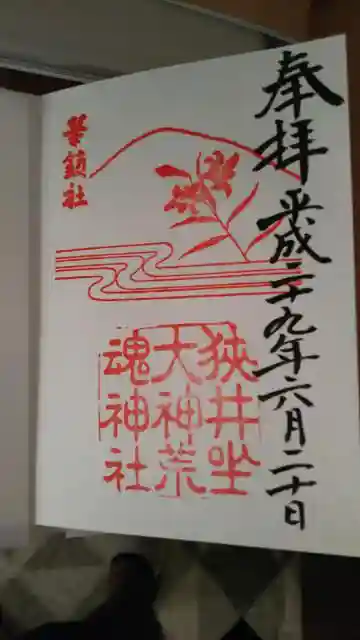 奉拝
平成二十九年六月二十日
華鎮社
狭井坐
大神荒
魂神社